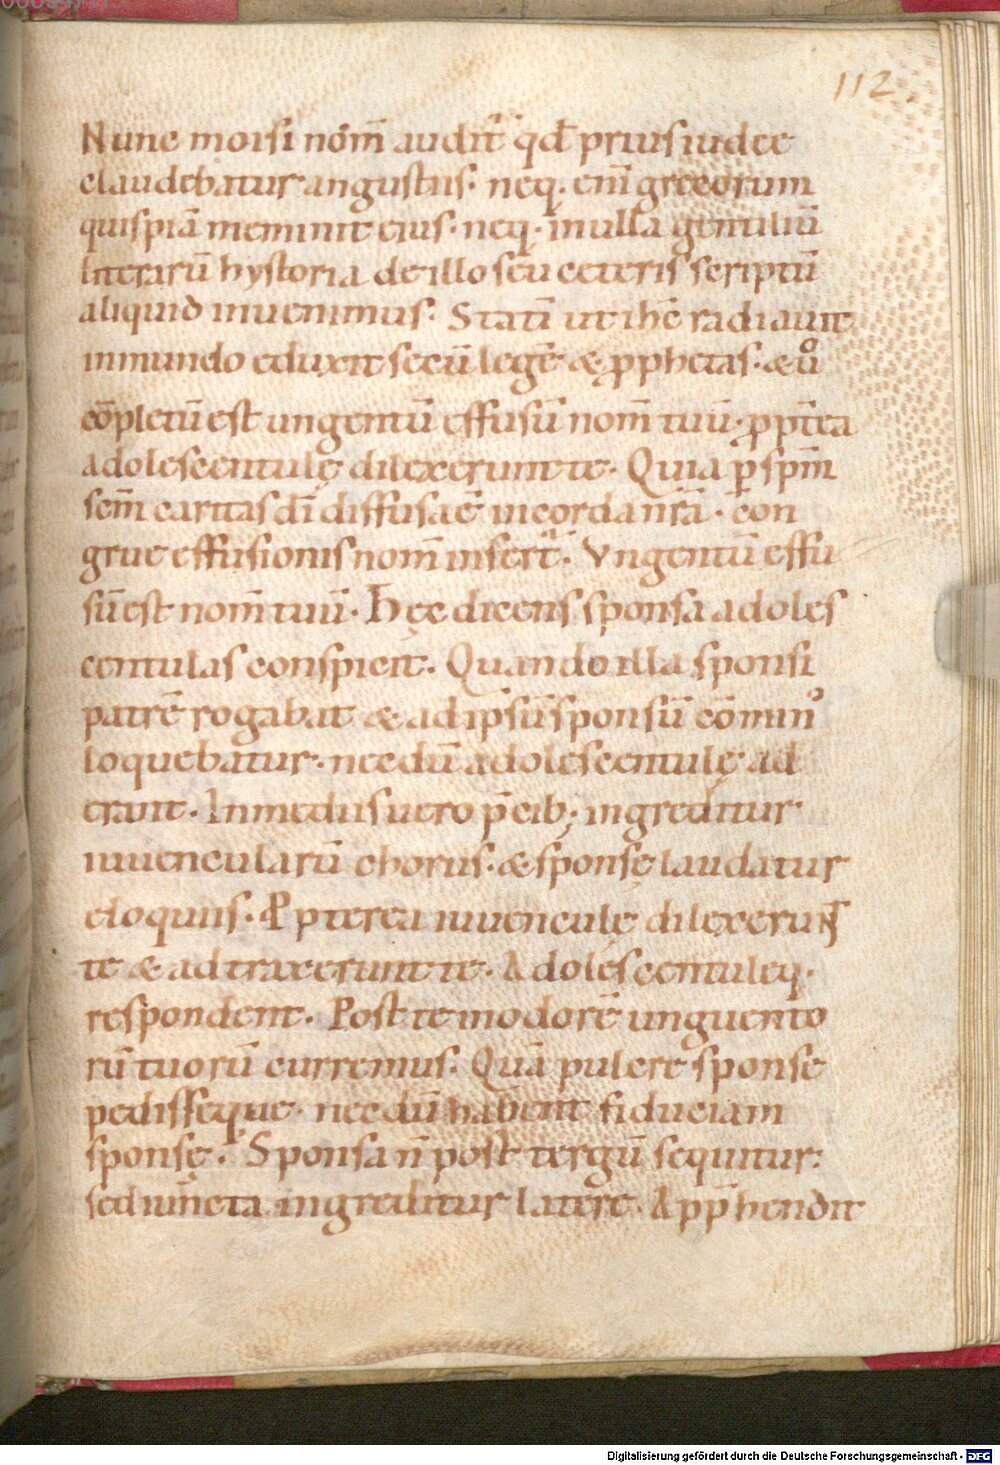 112.
Nunc moisi nom̄ audit̄ qđ prius iudee
claudebatur angustiis. neq. eni͞ grecorum
quispiā meminit eius. neq. in ulla gentiliū
literarū hystoria de illo seu ceteris scriptū
aliquid invenimus. Stati͞ ut ihc̄ radiavit
in mundo eduxit secū legē & ꝓphetas. & uͦ
cōpletū est ungentū effusū nom̄ tuū. ꝓpt̄ea
adolescentulę dilexerunt te. Quia ꝑ spm̄
scm̄ caritas dī diffusa ē in corda nr̄a. con
grue effusionis nom̄ inserit̄. Vngentū effu
sū est nom̄ tuū. Hęc dicens sponsa adoles
centulas conspicit. Quando illa sponsi
patrē rogabat & ad ipsū sponsū cōminͦ
loquebatur. necdū adolescentulę ad
erant. In mediis uero p̄cib; ingreditur
iuuencularū chorus. & sponsę laudatur
eloquiis. Ꝓpterea iuuenculę dilexerunt
te & adtraxerunt te. Adolescentuleq.
respondent. Post te in odorē unguento
rū tuorū curremus. Quā pulcre sponse
pedisseque. necdū habent fiduciam
sponsę. Sponsa n̄ post tergū sequitur.
sed iūncta ingreditur latere. Appr̄hendit
Digitalisierung gefördert durch die Deutsche Forschungsgemeinschaft - DFG